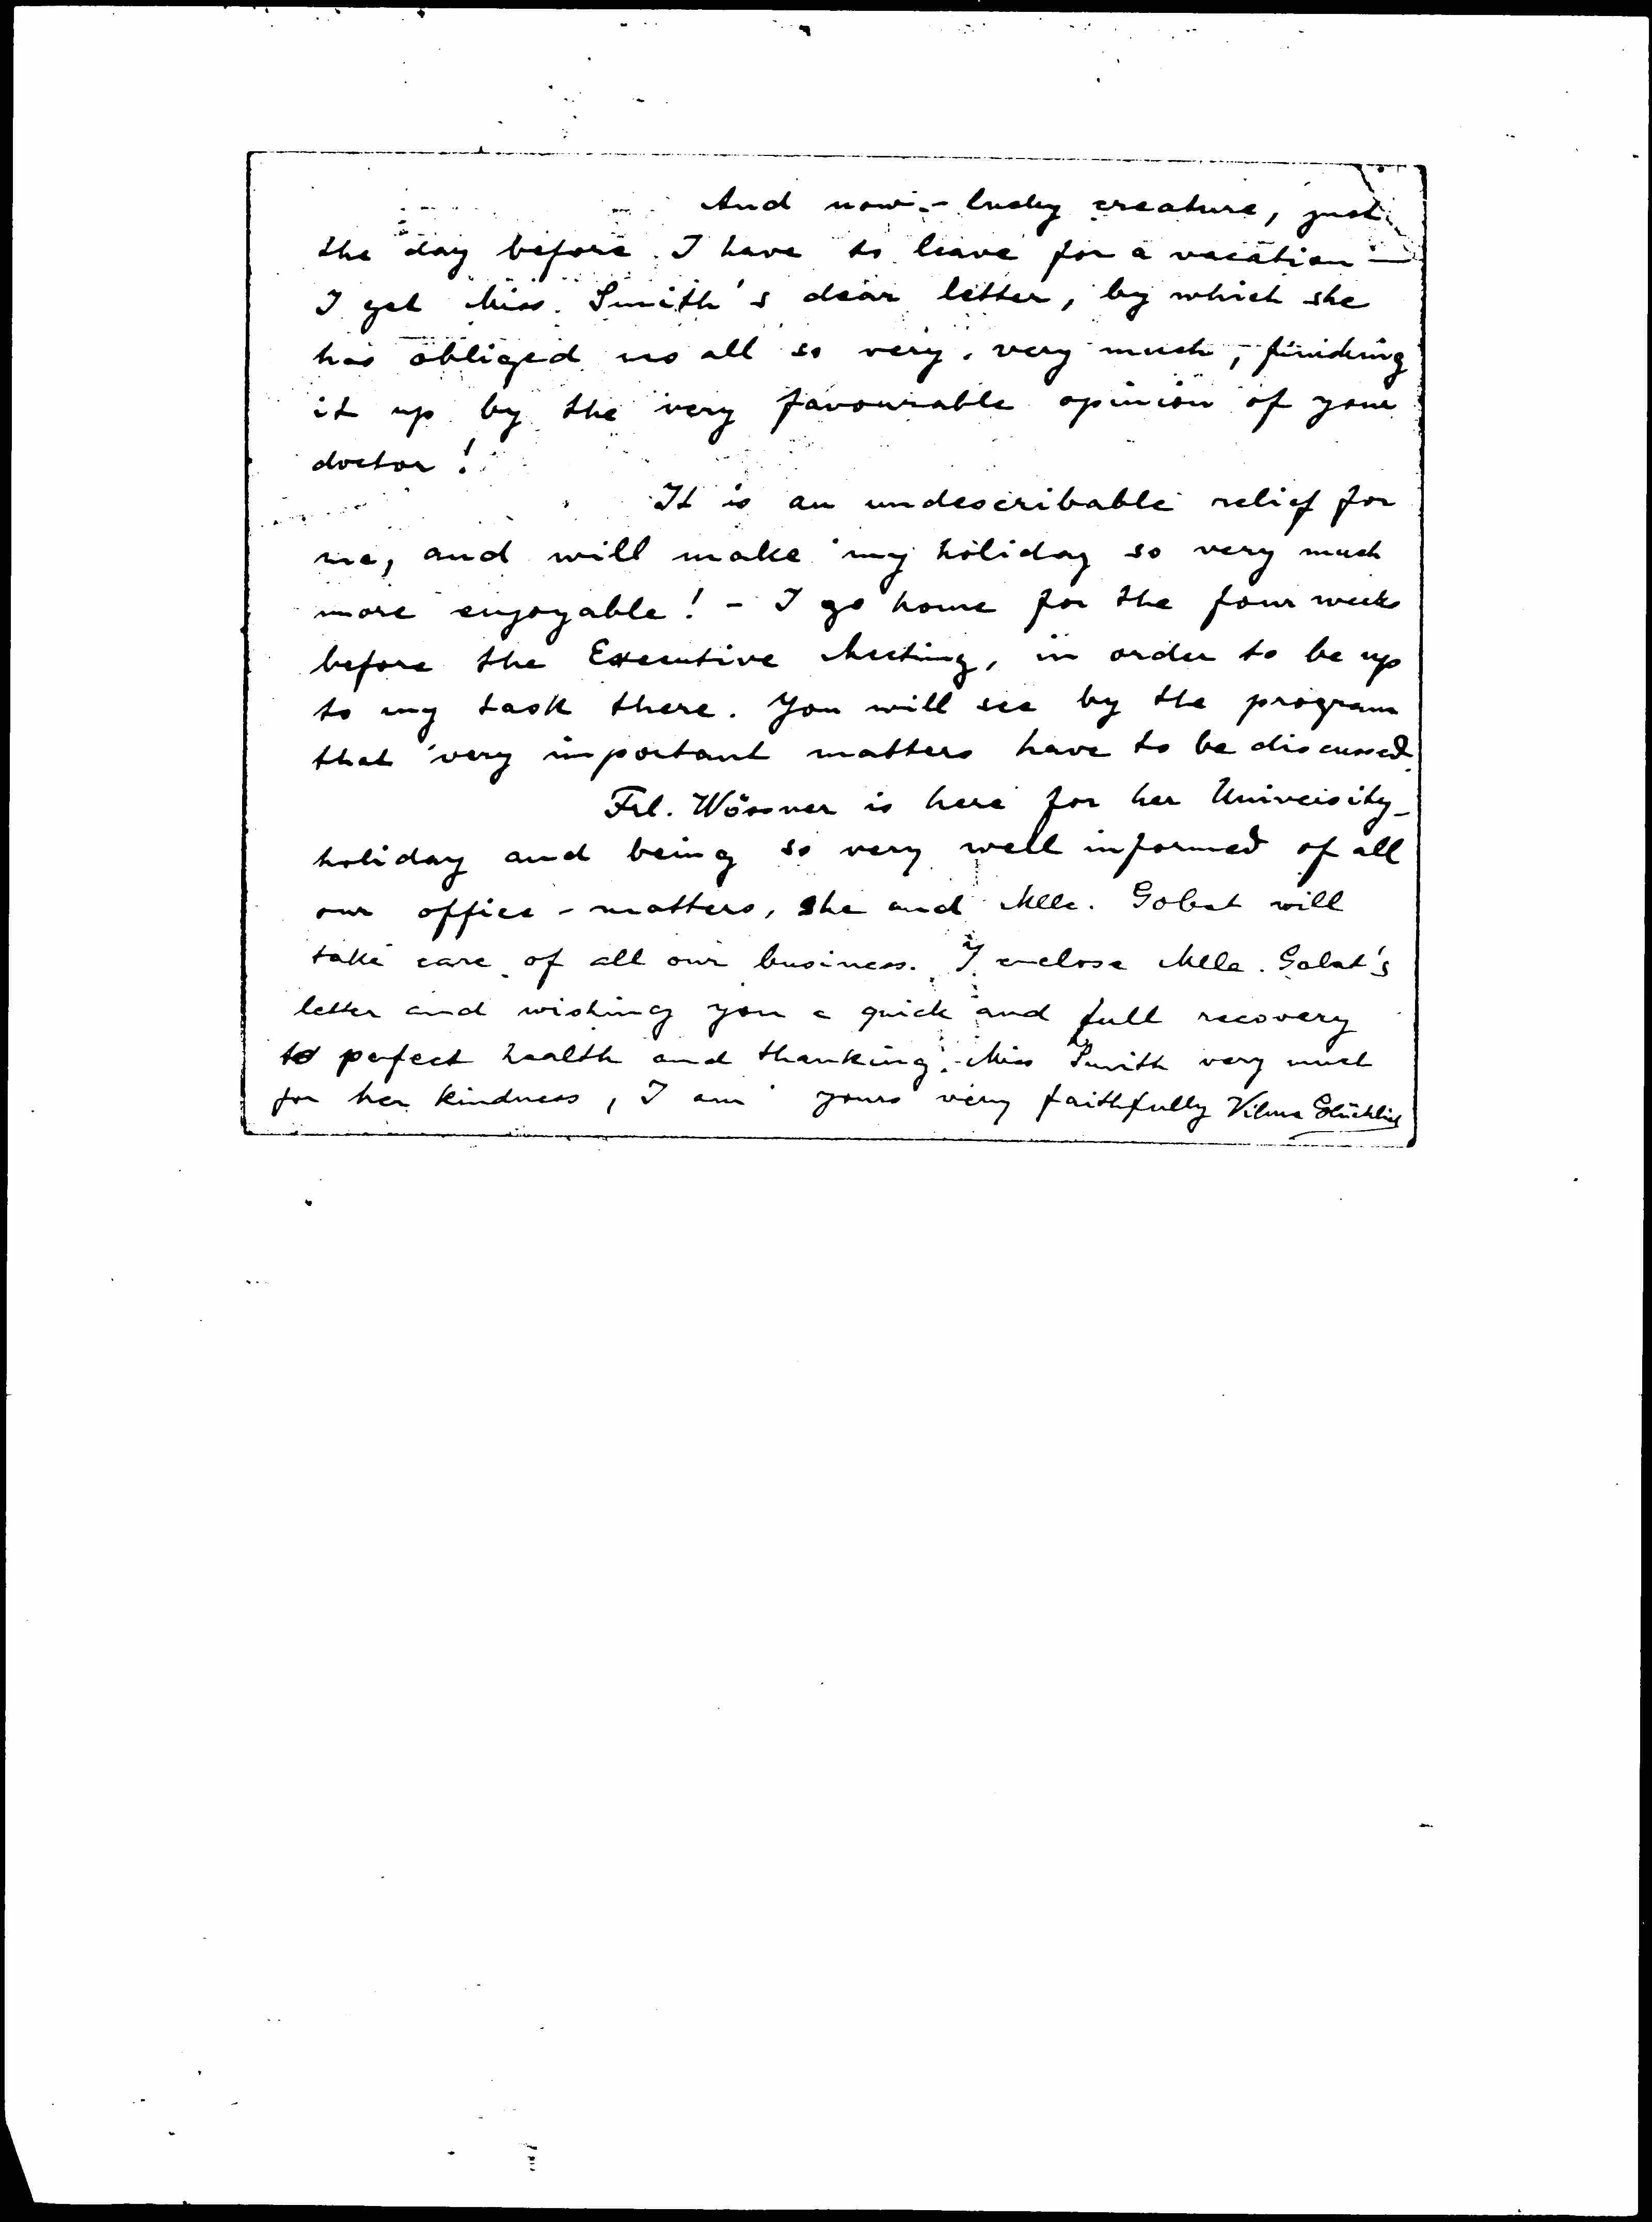 And now - lucky creature, just
the day before I have to leave for a vacation —
I get Miss Smith's dear letter, by which she
has obliged us all so very, very much, finishing
it up by the very favourable opinion of your
doctor!
It is an undescribable relief for
me, and will make my holiday so very much
more enjoyable! - I go home for the four weeks
before the Executive Meeting, in order to be up
to my task there. You will see by the program
that very important matters have to be discussed.
Frl. Wössner is here for her University-
holiday and being so very well informed of all
our office-matters, she and Mlle. Gobat will
take care of all our business. I enclose Mlle. Gobat's
letter and wishing you a quick and full recovery
to perfect health and thanking Miss Smith very much
for her kindness, I am yours very faithfully Vilma Glücklich